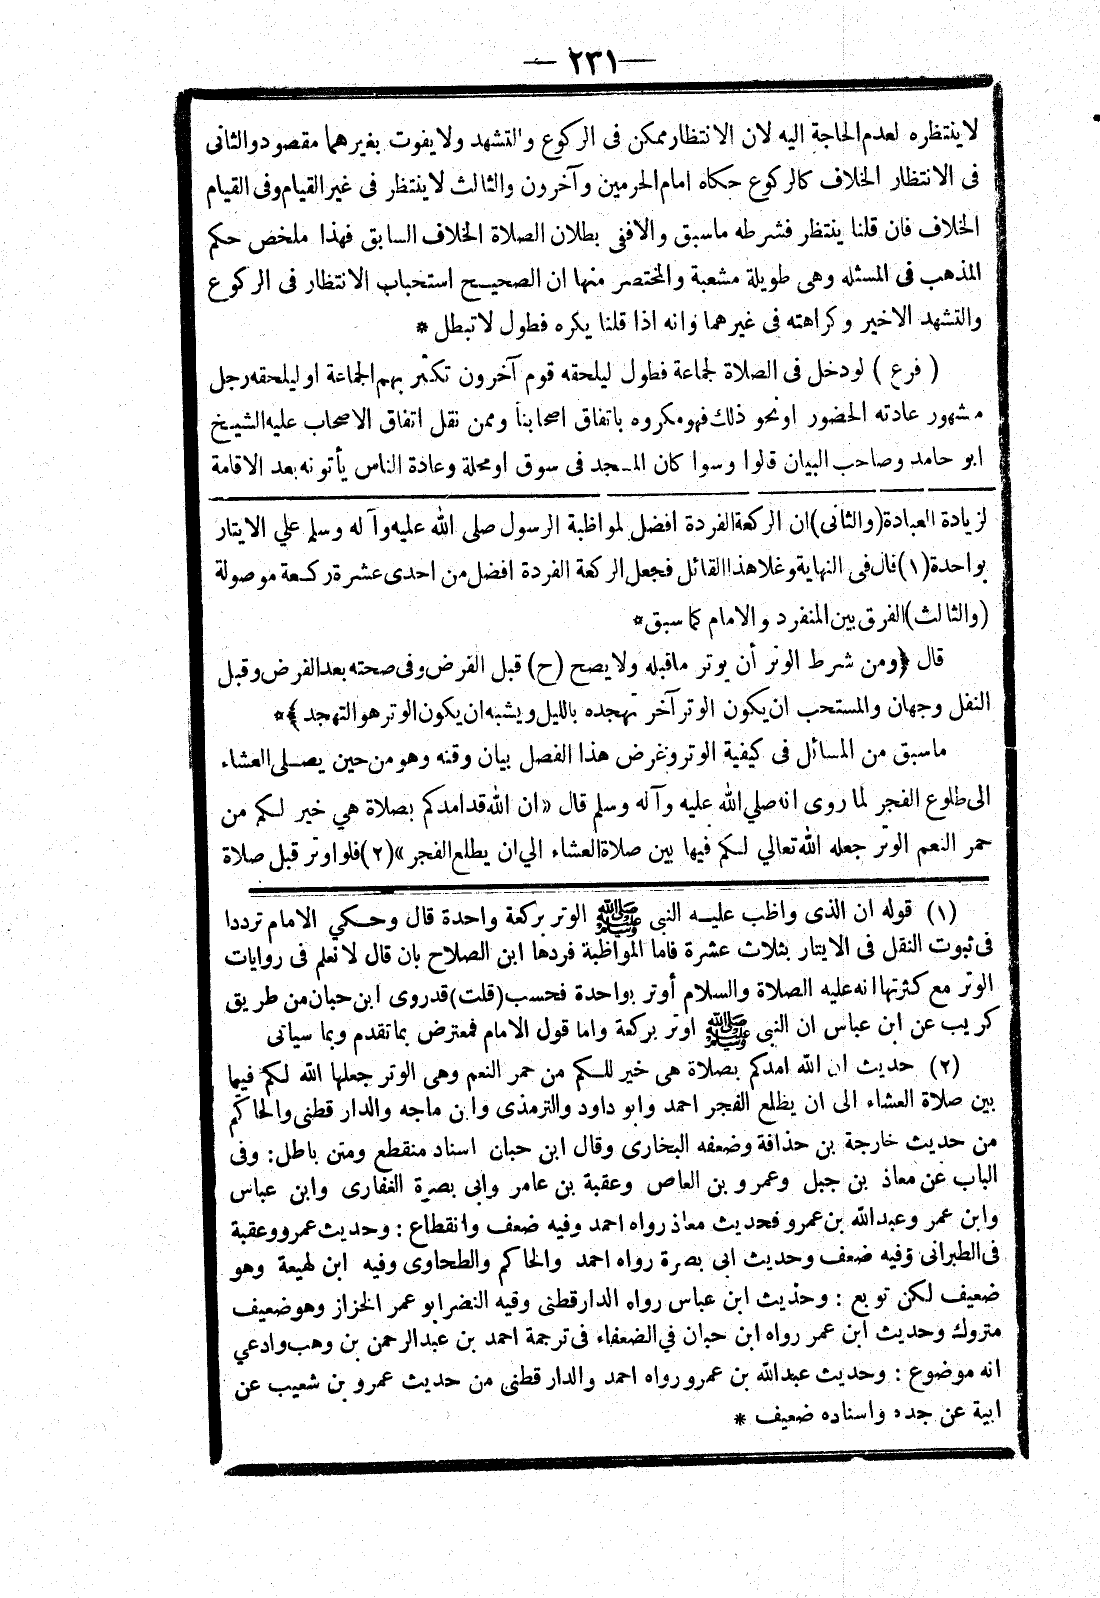 — ٢٣١ —
لاينتظره لعدم الحاجة اليه لان الانتظار ممكن فى الركوع والتشهد ولايفوت بغيرهما مقصود والثانى
فى الانتظار الخلاف كالركوع حكاه امام الحرمين وآخرون والثالث لاينتظر فى غير القيام وفى القيام
الخلاف فان قلنا ينتظر فشرطه ماسبق والافنى بطلان الصلاة الخلاف السابق فهذا ملخص حكم
المذهب فى المسئله وهى طويلة مشعبة والمختصر منها ان الصحيح استحباب الانتظار فى الركوع
والتشهد الاخير وكراهته فى غيرهما وانه اذا قلنا يكره فطول لاتبطل *
( فرع ) لودخل فى الصلاة لجماعة فطول ليلحقه قوم آخرون تكثر بهم الجماعة اوليلحقه رجل
مشهور عادته الحضور اونحو ذلك فهومكروه باتفاق اصحابنا وممن نقل اتفاق الاصحاب عليه الشيخ
ابو حامد وصاحب البيان قالوا وسوا كان المسجد فى سوق اومحلة وعادة الناس يأتونه بعد الاقامة
لزيادة العبادة (والثانى) ان الركعة الفردة افضل لمواظبة الرسول صلى الله عليه وآله وسلم علي الايتار
بواحدة (١) قال فى النهاية وغلا هذا القائل فجعل الركعة الفردة افضل من احدى عشرة ركعة موصولة
(والثالث) الفرق بين المنفرد والامام كما سبق *
قال ﴿ومن شرط الوتر أن يوتر ماقبله ولايصح (ح) قبل الفرض وفى صحته بعد الفرض وقبل
النفل وجهان والمستحب ان يكون الوتر آخر تهجده بالليل ويشبه ان يكون الوتر هو التهجد﴾ *
ماسبق من المسائل فى كيفية الوتر وغرض هذا الفصل بيان وقته وهو من حين يصلى العشاء
الى طلوع الفجر لما روى انه صلي الله عليه وآله وسلم قال «ان الله قد امدكم بصلاة هي خير لكم من
حمر النعم الوتر جعله الله تعالي لكم فيها بين صلاة العشاء الي ان يطلع الفجر» (٢) فلو اوتر قبل صلاة
(١) قوله ان الذى واظب عليه النبى ﷺ الوتر بركعة واحدة قال وحكي الامام ترددا
فى ثبوت النقل فى الايتار بثلاث عشرة فاما المواظبة فردها ابن الصلاح بان قال لا نعلم فى روايات
الوتر مع كثرتها انه عليه الصلاة والسلام أوتر بواحدة فحسب (قلت) قدروى ابن حبان من طريق
كريب عن ابن عباس ان النبى ﷺ اوتر بركعة واما قول الامام فمعترض بما تقدم وبما سياتى
(٢) حديث ان الله امدكم بصلاة هى خير للكم من حمر النعم وهى الوتر جعلها الله لكم فيما
بين صلاة العشاء الى ان يطلع الفجر احمد وابو داود والترمذى وابن ماجه والدارقطنى والحاكم
من حديث خارجة بن حذافة وضعفه البخارى وقال ابن حبان اسناد منقطع ومتن باطل: وفى
الباب عن معاذ بن جبل وعمرو بن العاص وعقبة بن عامر وابى بصرة الغفارى وابن عباس
وابن عمر وعبدالله بن عمرو فحديث معاذ رواه احمد وفيه ضعف وانقطاع : وحديث عمرو وعقبة
فى الطبرانى وفيه ضعف وحديث ابى بصرة رواه احمد والحاكم والطحاوى وفيه ابن لهيعة وهو
ضعيف لكن توبع : وحديث ابن عباس رواه الدارقطنى وفيه النضر ابو عمر الخزاز وهو ضعيف
متروك وحديث ابن عمر رواه ابن حبان في الضعفاء فى ترجمة احمد بن عبدالرحمن بن وهب وادعي
انه موضوع : وحديث عبدالله بن عمرو رواه احمد والدارقطنى من حديث عمرو بن شعيب عن
ابية عن جده واسناده ضعيف *